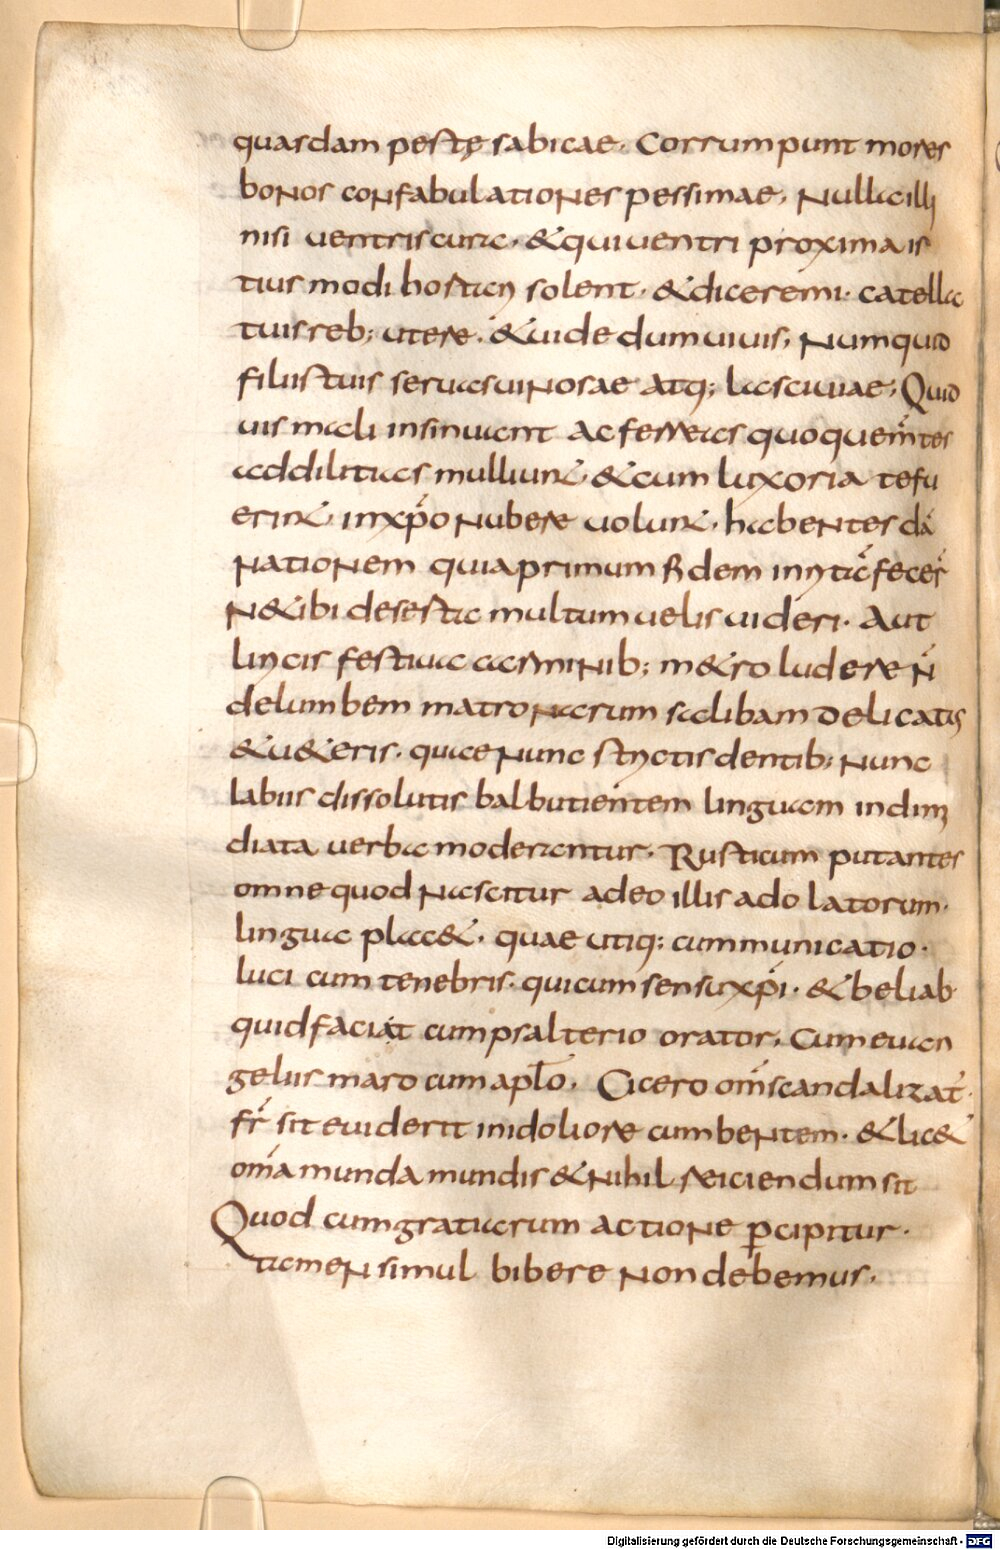 quasdam pestę sabicae. Corrumpunt mores
bonos confabulationes pessimae. Nulla illi
nisi uentris cura. & qui uentri proxima is
tius modi hostian solent. & dicere mi. catella
tuis reb; utere. & uide dum uiuis. Numquid
filiis tuis seruas uinosae atq; lasciuiae. Quid
uis mali insinuant ac ferreas quoque m̄tes
ad dilitias mulliunt. & cum luxoria te fu
erint. in xp̄o nubere uolunt. habentes dā
nationem quia primum fidem inrita fecer̄
N& ibi desesta multum uelis uideri. Aut
lincis festiua carminib; m&ro ludere n̄
delumbem matronarum saclibam delicatis
& u& eris. quae nunc strictis dentib; nunc
labiis dissolutis balbutientem linguam in dim
diata uerba moderantur. Rusticum putantes
omne quod nascitur adeo illis adolatorum.
lingua plac&. quae utiq; cummunicatio.
luci cum tenebris. qui cumsensu xp̄i. & beliab
quid faciat cum psalterio orator. Cum euan
geliis maro cum aplo. Cicero om̄ scandalizat̄.
fr̄ si te uiderit inidolio re cumbentem. & lic&
om̄a munda mundis & nihil reiciendum sit
Quod cum gratiarum actione percipitur.
tamen simul bibere non debemus.
Digitalisierung gefördert durch die Deutsche Forschungsgemeinschaft - DFG